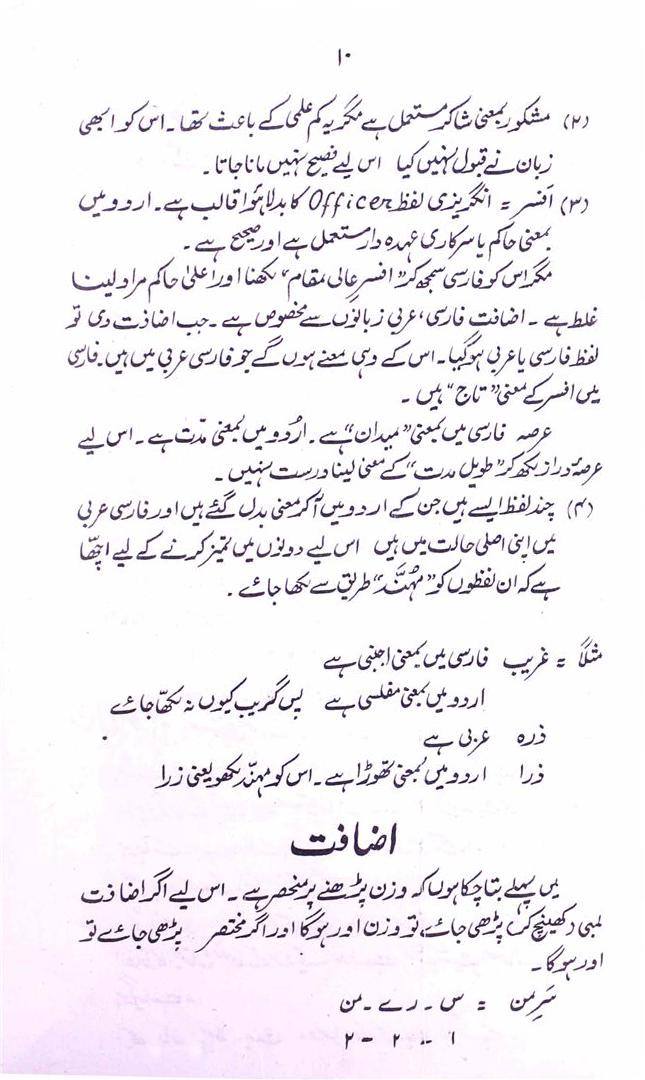 ۱۰
(۲) مشکور بمعنی شاکر مستعمل ہے مگر یہ کم علمی کے باعث تھا۔ اس کو ابھی
زبان نے قبول نہیں کیا اس لیے فصیح نہیں مانا جاتا۔
(۳) اَفسر = انگریزی لفظ Officer کا بدلا ہوا قالب ہے۔ اردو میں
بمعنی حاکم یا سرکاری عہدہ دار مستعمل ہے اور صحیح ہے۔
مگر اس کو فارسی سمجھ کر ”افسرِ عالی مقام“ لکھنا اور اعلیٰ حاکم مراد لینا
غلط ہے۔ اضافت فارسی، عربی زبانوں سے مخصوص ہے۔ جب اضافت دی تو
لفظ فارسی یا عربی ہو گیا۔ اس کے وہی معنے ہوں گے جو فارسی عربی میں ہیں۔ فارسی
میں افسر کے معنی ”تاج“ ہیں۔
عرصہ فارسی میں بمعنی ”میدان“ ہے۔ اردو میں بمعنی مدّت ہے۔ اس لیے
عرصۂ دراز لکھ کر ”طویل مدت“ کے معنی لینا درست نہیں۔
(۴) چند لفظ ایسے ہیں جن کے اردو میں آ کر معنی بدل گئے ہیں اور فارسی عربی
میں اپنی اصلی حالت میں ہیں اس لیے دونوں میں تمیز کرنے کے لیے اچھّا
ہے کہ ان لفظوں کو ”مُہنَّد“ طریق سے لکھا جائے۔
مثلاً = غریب فارسی میں بمعنی اجنبی ہے
اردو میں بمعنی مفلسی ہے پس گریب کیوں نہ لکھّا جائے
ذرہ عربی ہے
ذرا اردو میں بمعنی تھوڑا ہے۔ اس کو مہنّد لکھو یعنی زرا
اضافت
میں پہلے بتا چکا ہوں کہ وزن پڑھنے پر منحصر ہے۔ اس لیے اگر اضافت
لمبی (کھینچ کر) پڑھی جائے، تو وزن اور ہو گا اور اگر مختصر پڑھی جائے تو
اور ہو گا۔
سَرِمن = س۔ رے۔ من
۱ - ۲ - ۲